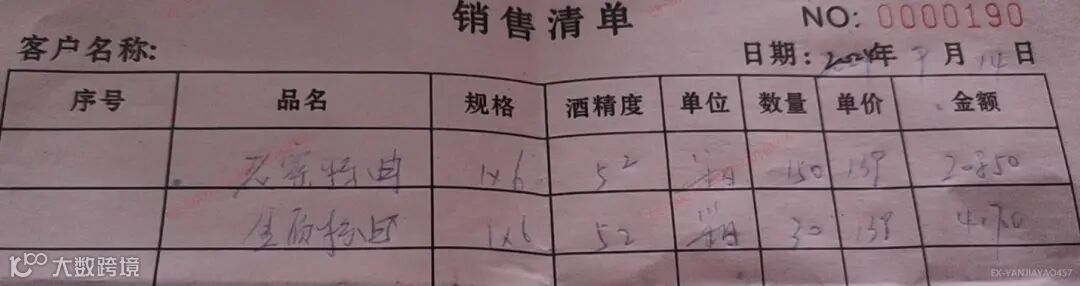 销售清单 NO: 0000190
客户名称: 日期: 2024年 7月 14日
序号 品名 规格 酒精度 单位 数量 单价 金额
特曲 1×6 52 箱 150 139 20850
1×6 52 箱 30 139 4170
100 大数跨境
EX-YANJIAYAO457